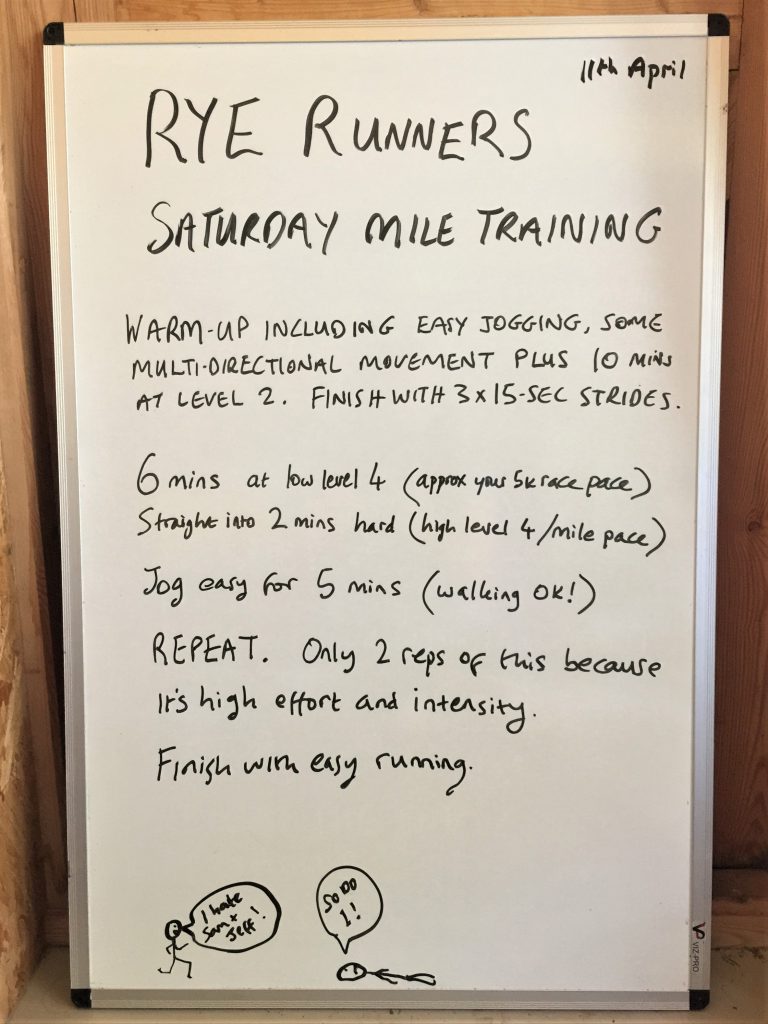 11th April
RYE RUNNERS
SATURDAY MILE TRAINING
WARM-UP INCLUDING EASY JOGGING, SOME
MULTI-DIRECTIONAL MOVEMENT PLUS 10 MINS
AT LEVEL 2. FINISH WITH 3 x 15-SEC STRIDES.
6 mins at low level 4 (approx your 5k race pace)
Straight into 2 mins hard (high level 4/mile pace)
Jog easy for 5 mins (walking OK!)
REPEAT. Only 2 reps of this because
it's high effort and intensity.
Finish with easy running.
I hate
Sam +
Jeff!
SO DO
I!
VIZ-PRO